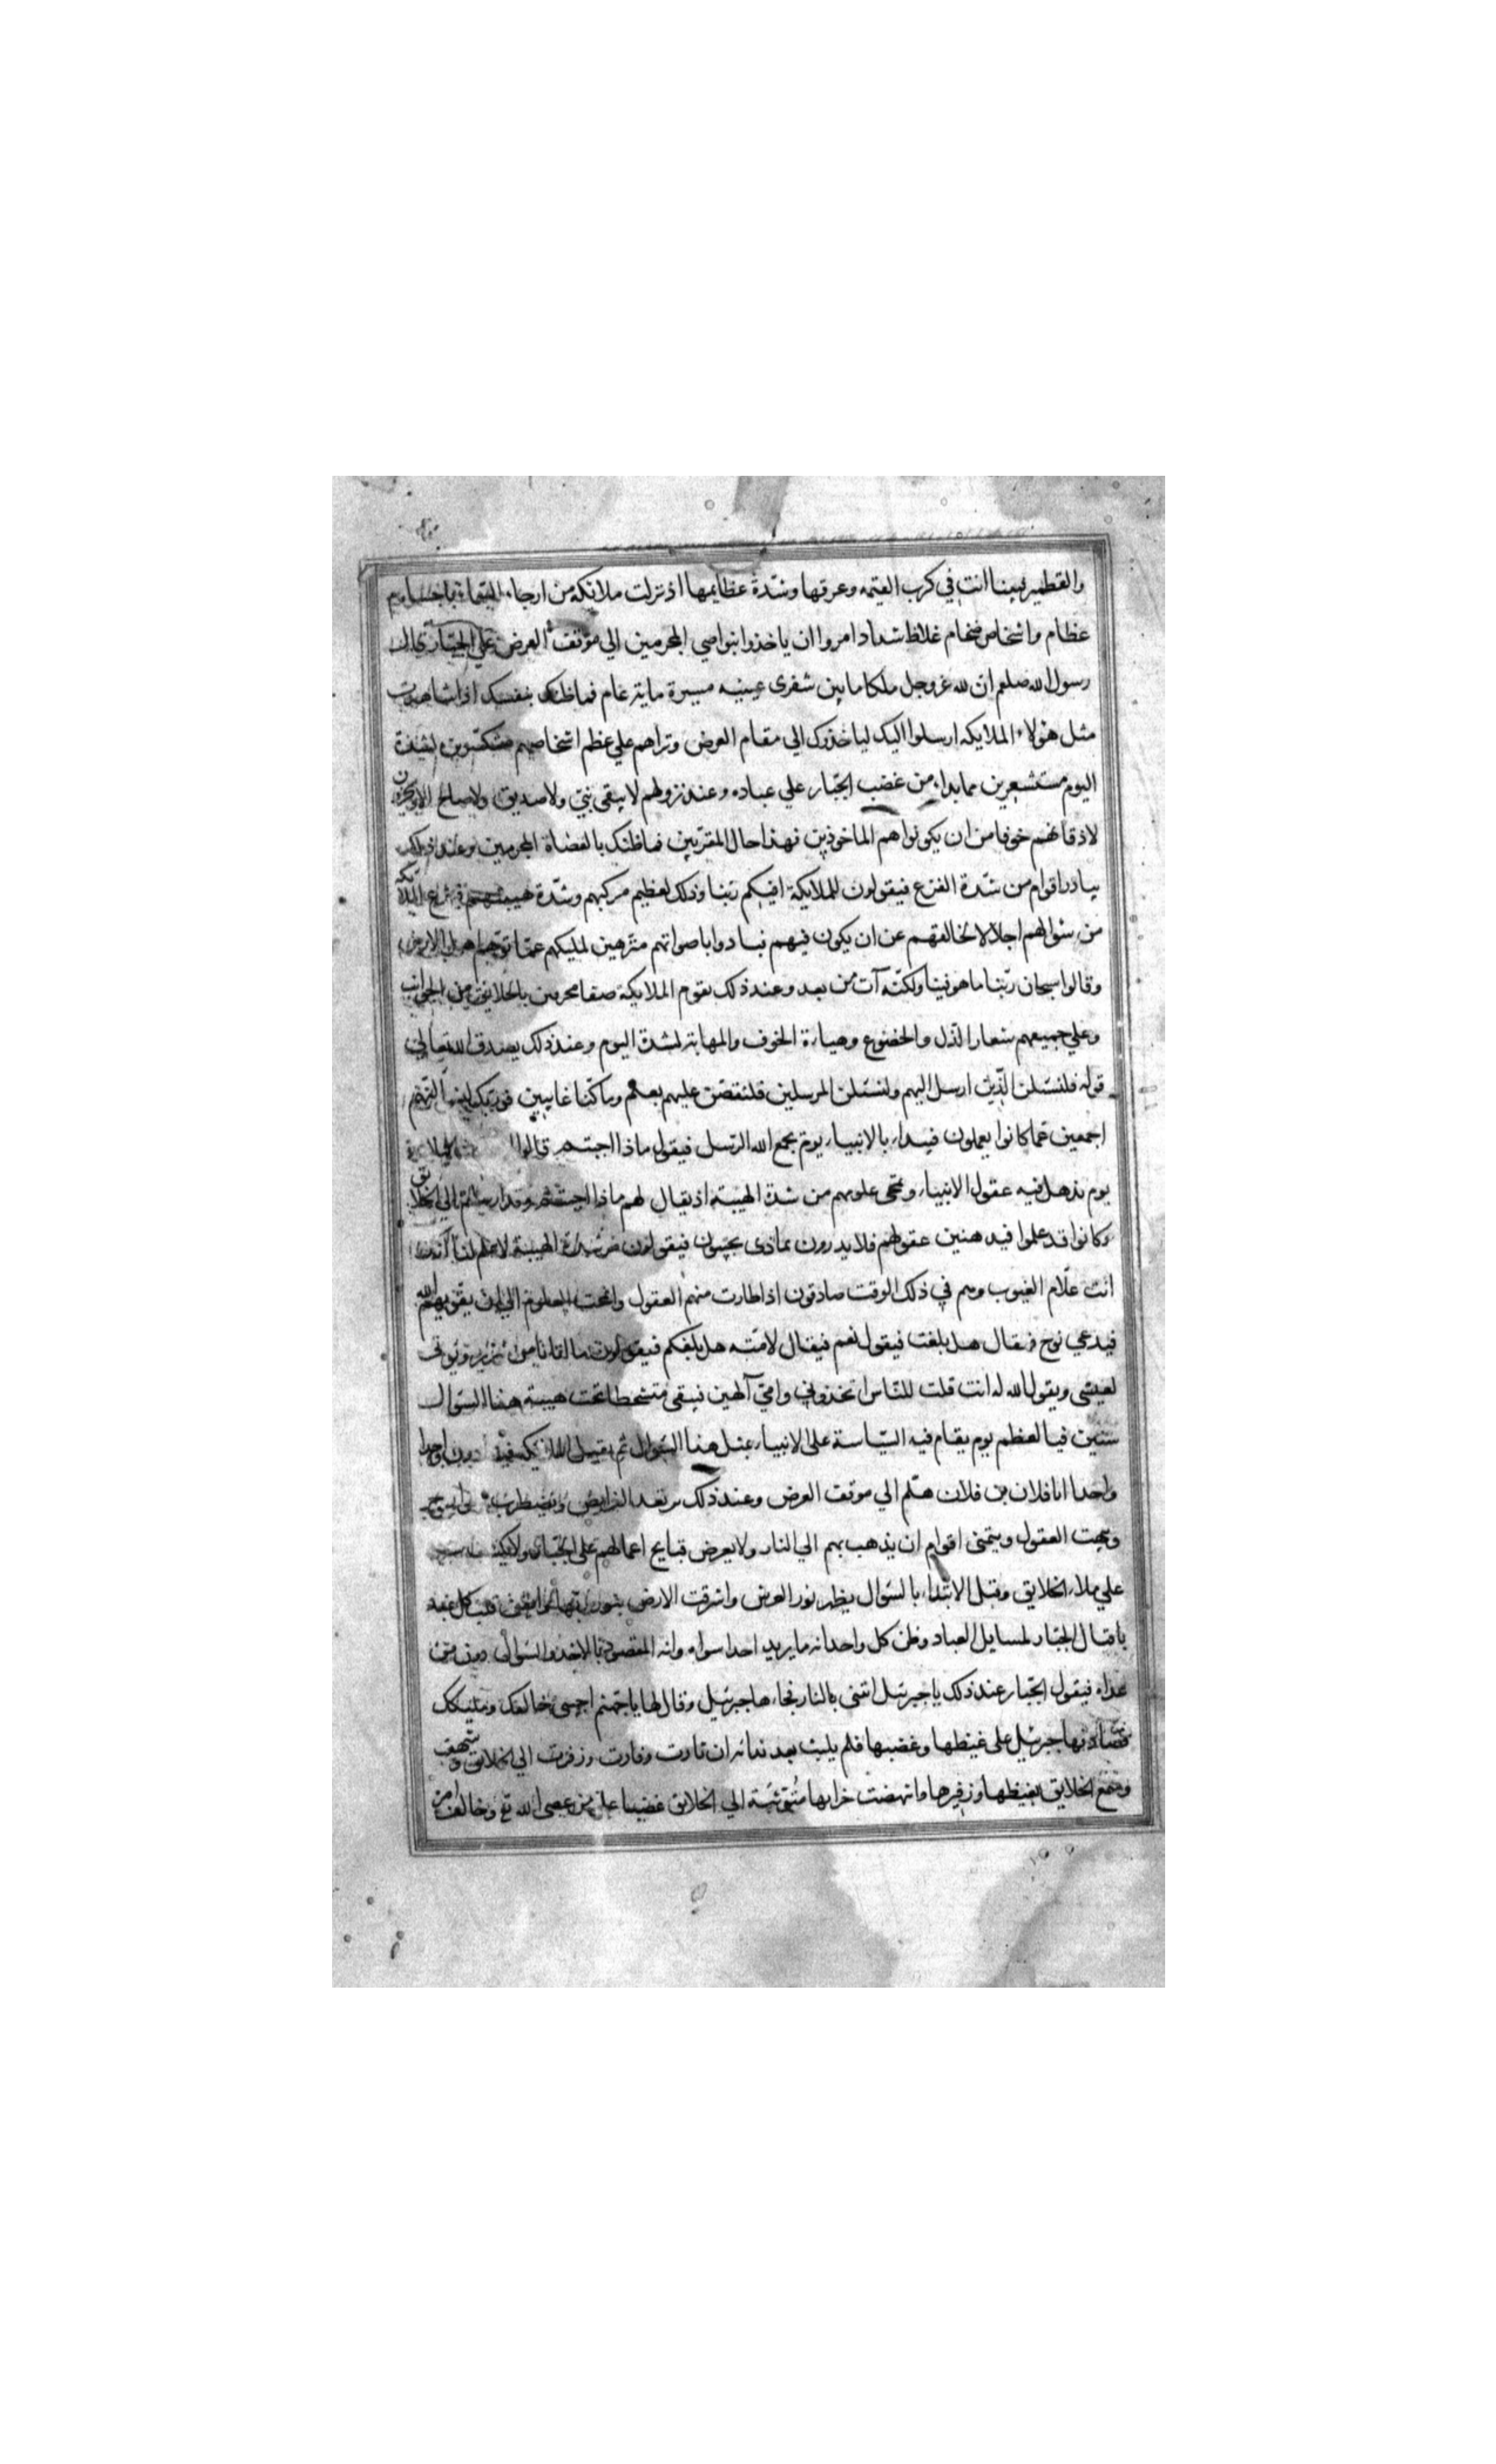 والقطمير فبينا انت في كرب القيمة وعرقها وشدة عظايمها اذ نزلت ملائكة من ارجاء السماء باجسام
عظام واشخاص ضخام غلاظ شداد امروا ان ياخذوا بنواصي المجرمين الي موقف العرض علي الجبار قال
رسول الله صلعم ان لله عز وجل ملكا ما بين شفري عينيه مسيرة ماية عام فما ظنك بنفسك اذا شاهدت
مثل هولاء الملايكة ارسلوا اليك لياخذوك الي مقام العرض وتراهم علي عظم اشخاصهم منكسرين لشدة
اليوم مستشعرين مما بدا من غضب الجبار علي عباده وعند نزولهم لا يبقي نبي ولا صديق ولا صالح الا ويخرون
لاذقانهم خوفا من ان يكونوا هم الماخوذين فهذا حال المقربين فما ظنك بالعصاة المجرمين وعند ذلك
يبادر اقوام من شدة الفزع فيقولون للملايكة افيكم ربنا وذلك لعظيم مركبهم وشدة هيبتهم فتفزع الملايكة
من سؤالهم اجلالا لخالقهم عن ان يكون فيهم فنادوا باصواتهم منزهين لمليكهم عما توهمه اهل الارض
وقالوا سبحان ربنا ما هو فينا ولكنه آت من بعد وعند ذلك يقوم الملايكة صفا محرمين بالخلايق من الجوانب
وعلي جميعهم شعار الذل والخضوع وهيارة الخوف والمهابة لشدة اليوم وعند ذلك يصدق الله تعالي
قوله فلنسئلن الذين ارسل اليهم ولنسئلن المرسلين فلنقصن عليهم بعلم وما كنا غايبين فوربك لنسئلنهم
اجمعين عما كانوا يعملون فيبداء بالانبياء يوم يجمع الله الرسل فيقول ماذا اجبتم قالوا
يوم يذهل فيه عقول الانبياء وتمحي علومهم من شدة الهيبة اذ يقال لهم ماذا اجبتم وقد ارسلتم الي الخلايق
وكانوا قد علموا فيدهش عقولهم فلا يدرون بماذى يجيبون فيقولون من شدة الهيبة لا علم لنا انك
انت علام الغيوب وهم في ذلك الوقت صادقون اذا طارت منهم العقول وانمحت العلوم الي ان يقويهم الله
فيدعي نوح فيقال هل بلغت فيقول نعم فيقال لامته هل بلغكم فيقولون ما اتانا من نذير ويوتي
لعيسى ويقول الله له انت قلت للناس اتخذوني وامي آلهين فيبقى متشحطا تحت هيبة هذا السؤال
سنين فيا لعظم يوم يقام فيه السياسة على الانبياء بمثل هذا السؤال ثم يقبل الملايكة واحدا
واحدا انا فلان بن فلان هلم الي موقف العرض وعند ذلك ترتعد الفرايص وتضطرب الجوارح
وتبهت العقول ويتمنى اقوام ان يذهب بهم الي النار ولا يعرض قبايح اعمالهم على الجبار ولا يكشف سترهم
علي ملاء الخلايق وقبل الابتداء بالسؤال يظهر نور العرش واشرقت الارض بنور ربها وايقن قلب كل عبد
باقبال الجبار لمسايل العباد وظن كل واحد انه ما يريد احدا سواه وانه المقصود بالاخذ والسؤال دون من
عداه فيقول الجبار عند ذلك يا جبرئيل ائتنى بالنار فجاءها جبرئيل وقال لها يا جهنم اجيبى خالقك ومليكك
فصادفها جبرئيل على غيظها وغضبها فلم يلبث بعد ندائه ان ثارت وفارت وزفرت الي الخلايق وشهقت
وسمع الخلايق بغيظها وزفيرها وانتهضت خزانها متوثبة الي الخلايق غضبا علي من عصى الله تع وخالف امره